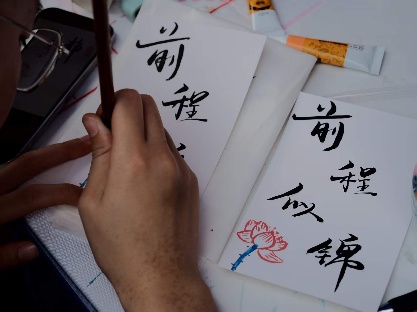 前
程
前
程
似
錦